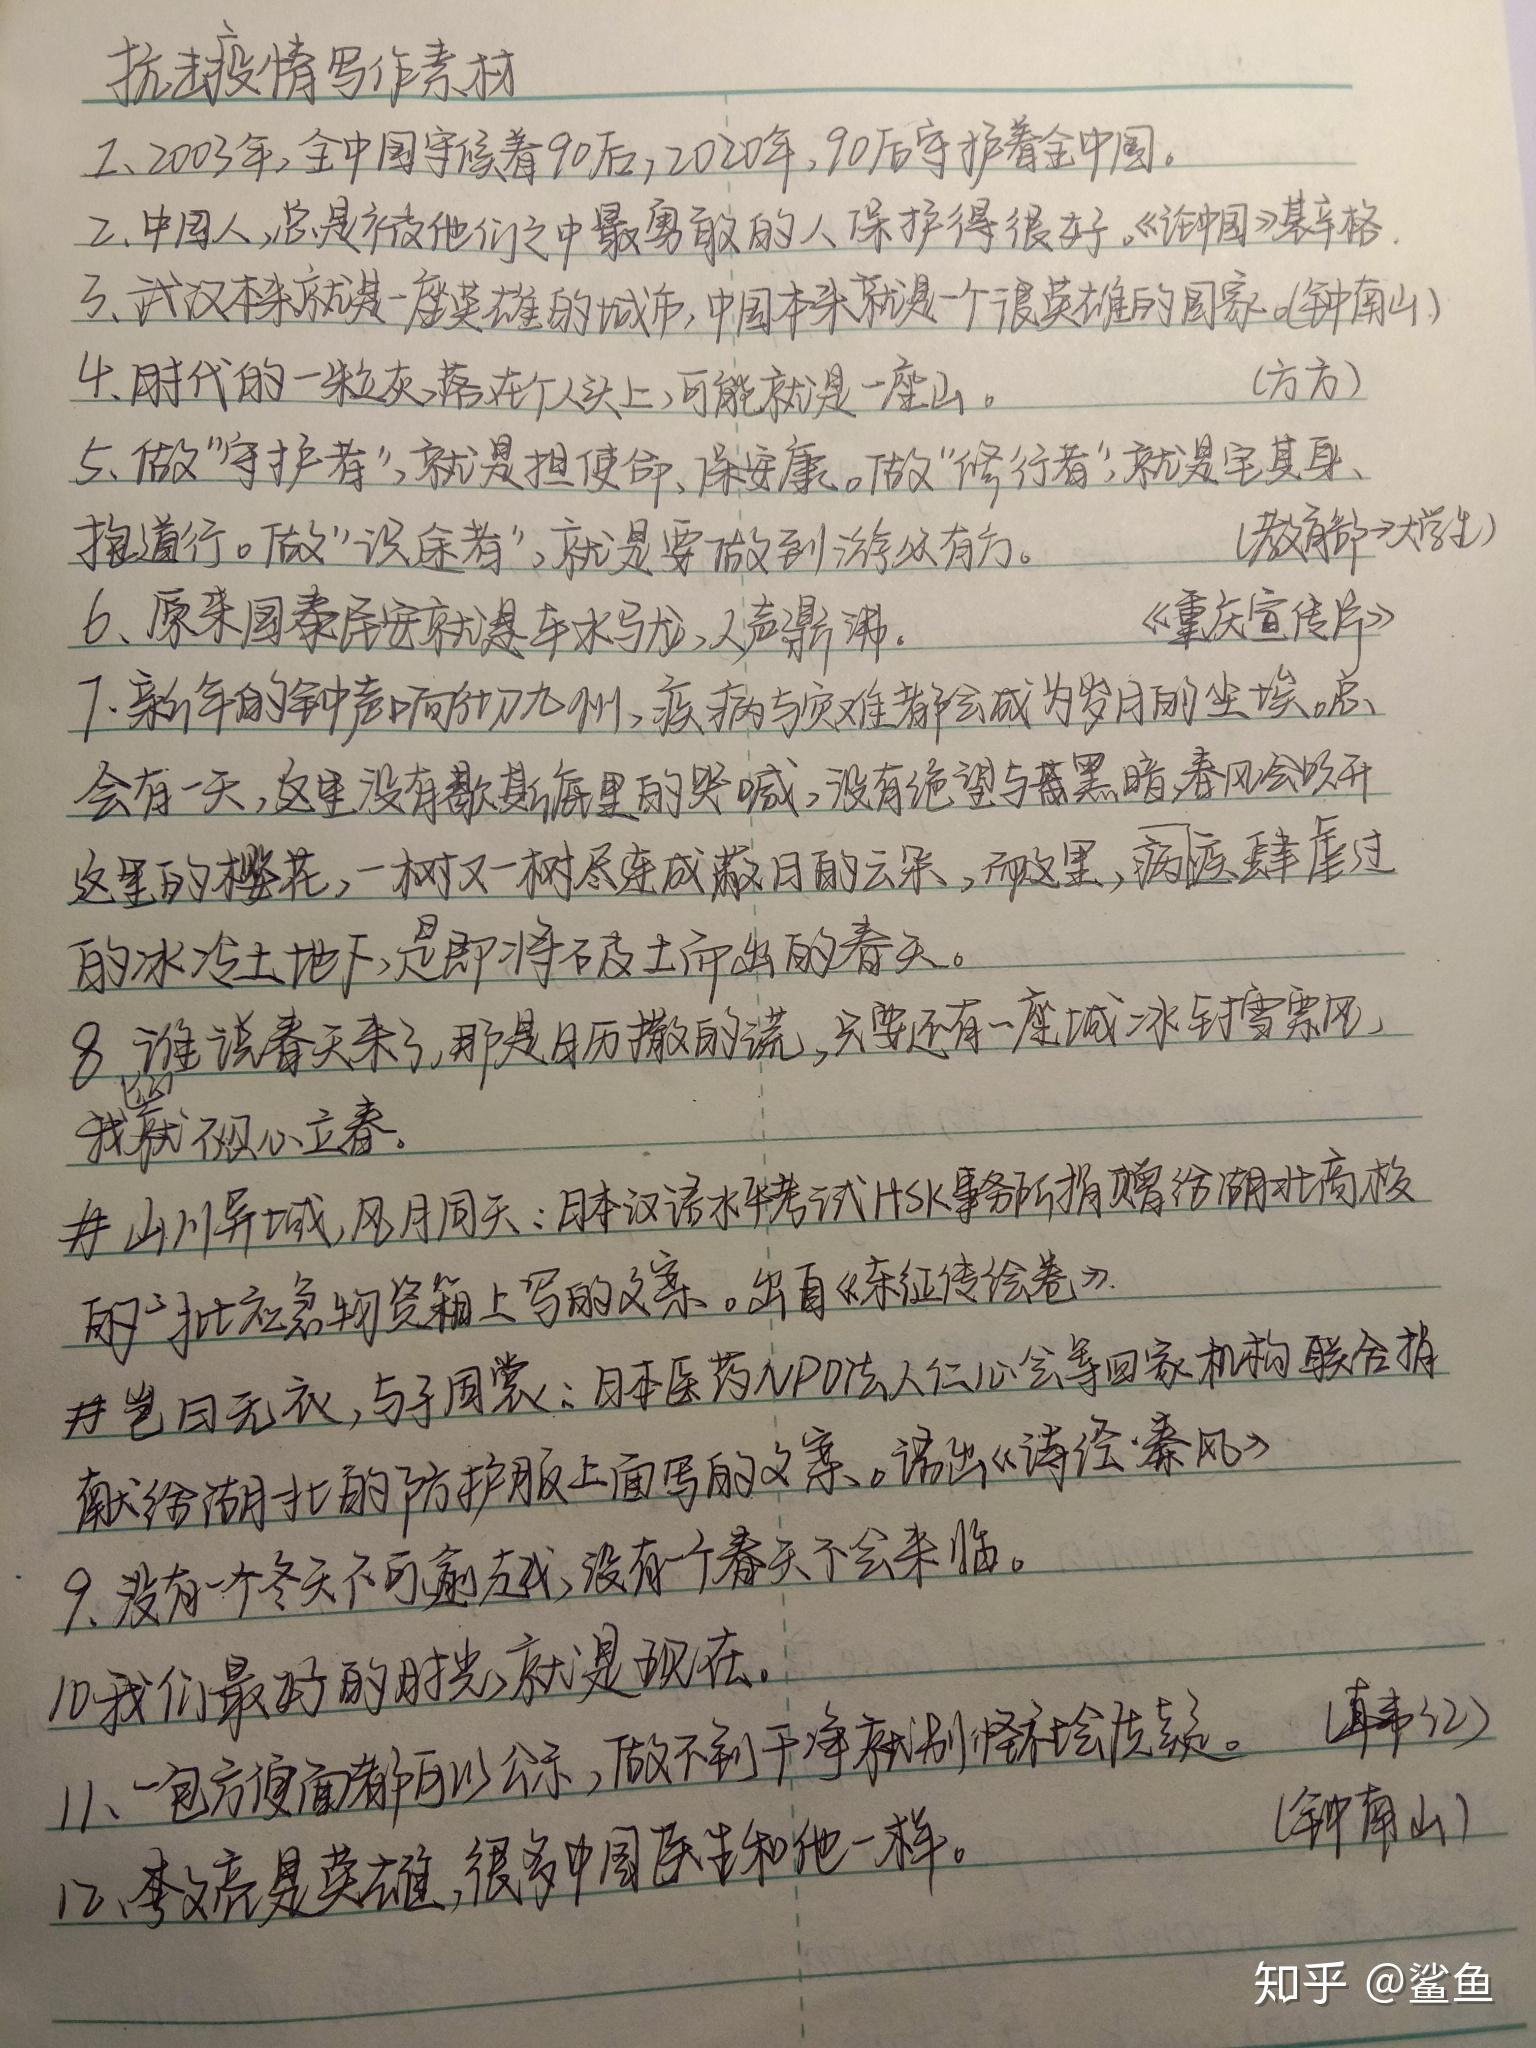 抗击疫情写作素材
1、2003年,全中国守候着90后,2020年,90后守护着全中国。
2、中国人,总是被他们之中最勇敢的人保护得很好。《论中国》基辛格.
3、武汉本来就是一座英雄的城市,中国本来就是一个很英雄的国家。(钟南山)
4、时代的一粒灰,落在个人头上,可能就是一座山。 (方方)
5、做"守护者",就是担使命、保安康。做"修行者",就是宅其身、
抱道行。做"识途者",就是要做到治学从有方。 (教育部→大学生)
6、原来国泰民安就是车水马龙,人声鼎沸. 《重庆宣传片》
7.新年的钟声响彻九州,疾病与灾难都会成为岁月的尘埃。总、
会有一天,这里没有歇斯底里的哭喊,没有绝望与黑暗,春风会吹开
这里的樱花,一树又一树尽连成蔽日的云朵,而这里,病疫肆虐过
的冰冷土地下,是即将破土而出的春天。
8 谁说春天来了,那是日历撒的谎,只要还有一座城冰封雪飘风,
我就不忍心立春。
# 山川异域,风月同天:日本汉语水平考试HSK事务所捐赠给湖北高校
的一批应急物资箱上写的文案。出自《东征传绘卷》.
# 岂曰无衣,与子同裳:日本医药NPO法人仁心会等四家机构联合捐
献给湖北的防护服上面写的文案。语出《诗经·秦风》
9、没有一个冬天不可逾越,没有一个春天不会来临。
10我们最好的时光,就是现在。
11、一包方便面都可以公示,做不到干净就别怪社会质疑。 (韩红)
12、李文亮是英雄,很多中国医生和他一样。 (钟南山)
知乎 @鲨鱼